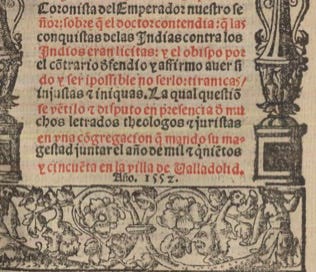 Coronista del Emperador nuestro se
ñor: sobre q̃ el doctor contendia: q̃ las
conquistas delas Indias contra los
Indios eran licitas: y el obispo por
el cõtrario d̃fendio y affirmo auer si
do y ser ĩpossible no serlo: tiranicas/
injustas ⁊ iniquas. La qual questiõ
se vẽtilo ⁊ disputo en presencia d̃ mu
chos letrados theologos ⁊ juristas
en vna cõgregacion q̃ mando su ma-
gestad juntar el año de mil ⁊ q̃niẽtos
y cincuẽta en la villa de Valladolid.
Año. 1552.